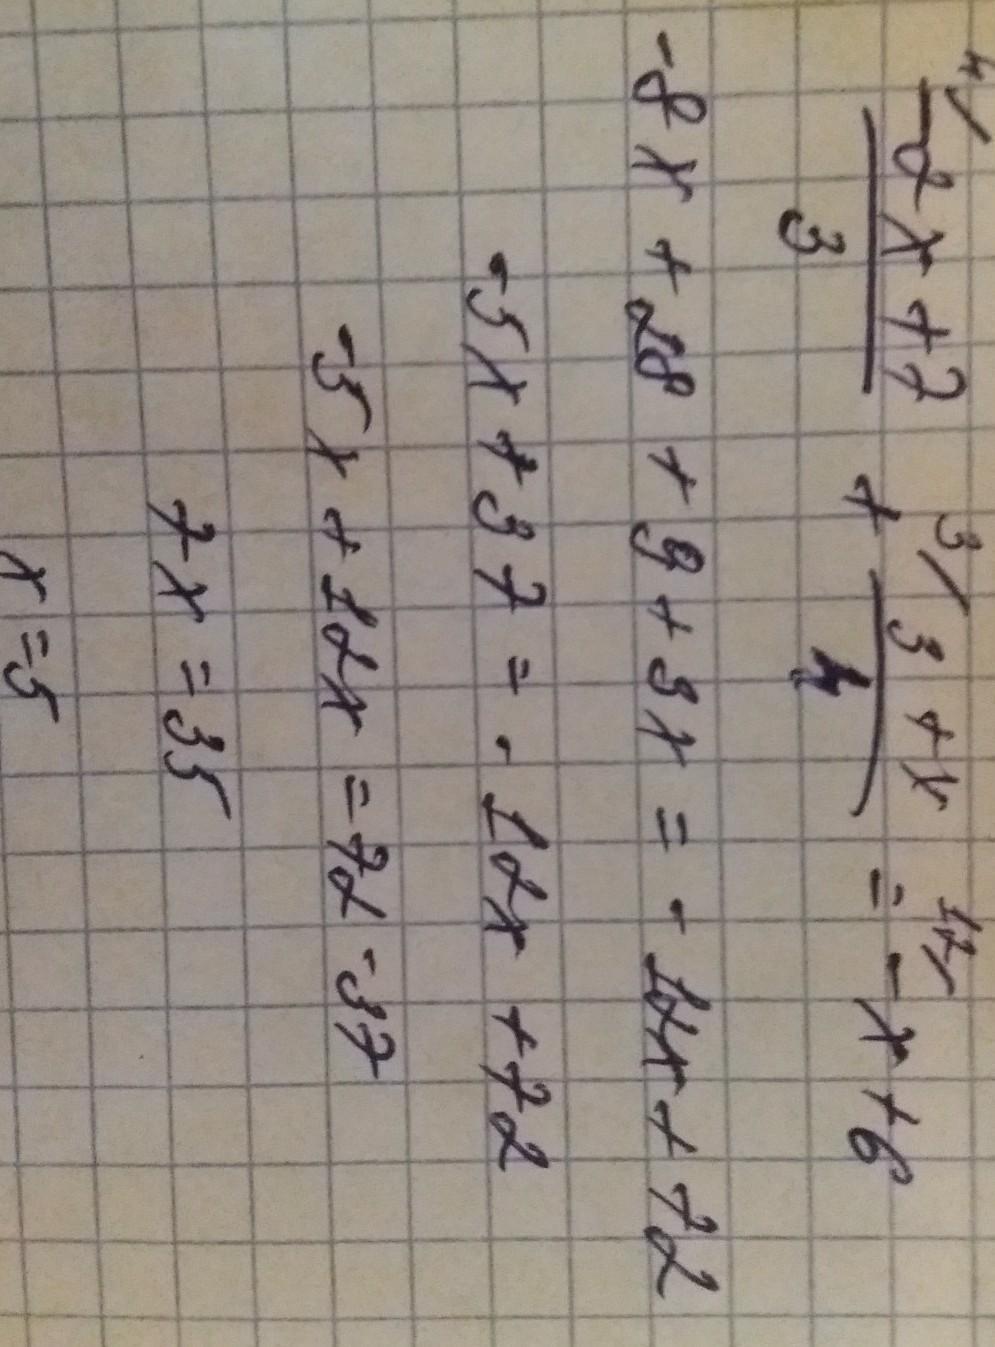 4/ -2x+7 / 3 + 3/ 3+x / 4 = 12/ -x+6
-8x+28+9+3x=-12x+72
-5x+37=-12x+72
-5x+12x=72-37
7x=35
x=5